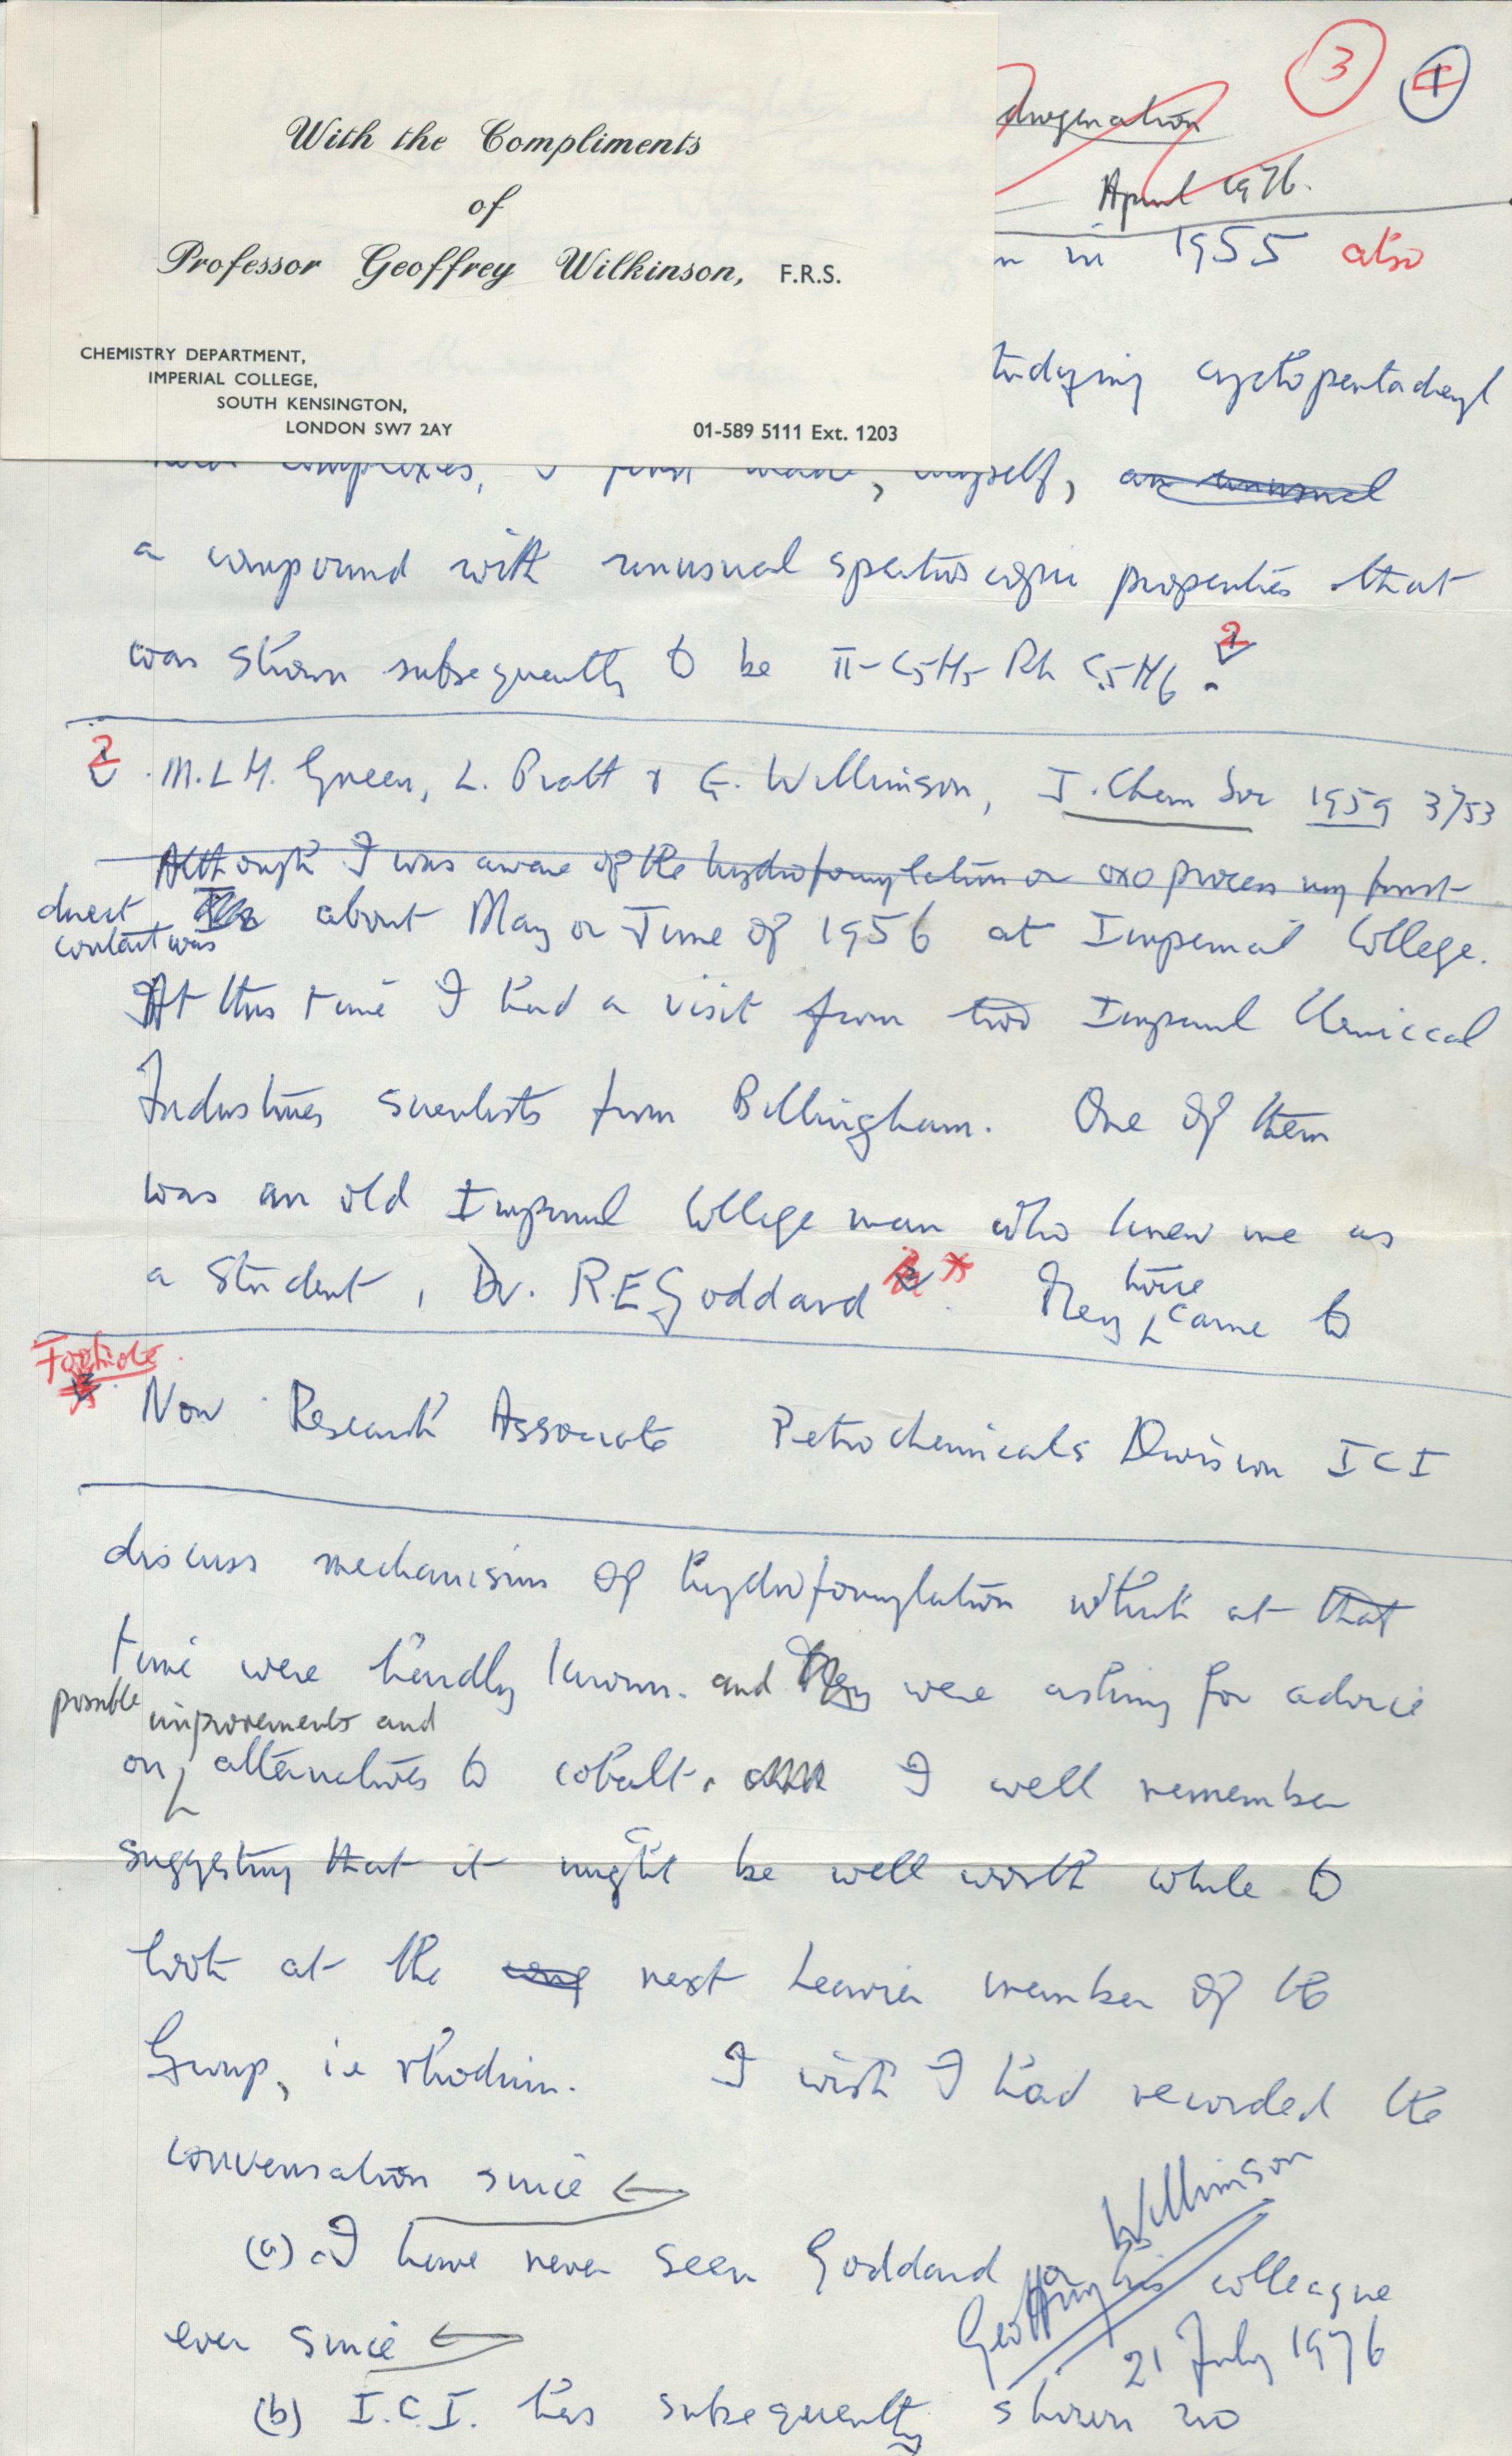 With the Compliments
of
Professor Geoffrey Wilkinson, F.R.S.
CHEMISTRY DEPARTMENT,
IMPERIAL COLLEGE,
SOUTH KENSINGTON,
LONDON SW7 2AY
01-589 5111 Ext. 1203
3 1
drogenation
April 1976.
n in 1955 also
tudying cyclopentadienyl
complexes, I first made, myself, an unusual
a compound with unusual spectroscopic properties that
was shown subsequently to be π-C5H5 Rh C5H6. 2
2. M.L.H. Green, L. Pratt & G. Wilkinson, J. Chem Soc 1959 3753
Although I was aware of the hydroformylation or oxo process my first
direct contact was about May or June of 1956 at Imperial College.
At this time I had a visit from two Imperial Chemical
Industries scientists from Billingham. One of them
was an old Imperial College man who knew me as
a student, Dr. R.E Goddard *. They have came to
Footnote
* Now Research Associate Petrochemicals Division ICI
discuss mechanisms of hydroformylation which at that
time were hardly known. and They were asking for advice
possible improvements and
on alternatives to cobalt. I well remember
suggesting that it might be well worth while to
look at the next heavier member of the
Group, ie rhodium. I wish I had recorded the
conversation since
(a) I have never seen Goddard or his colleague
ever since
Geoffrey Wilkinson
21 July 1976
(b) I.C.I. has subsequently shown no